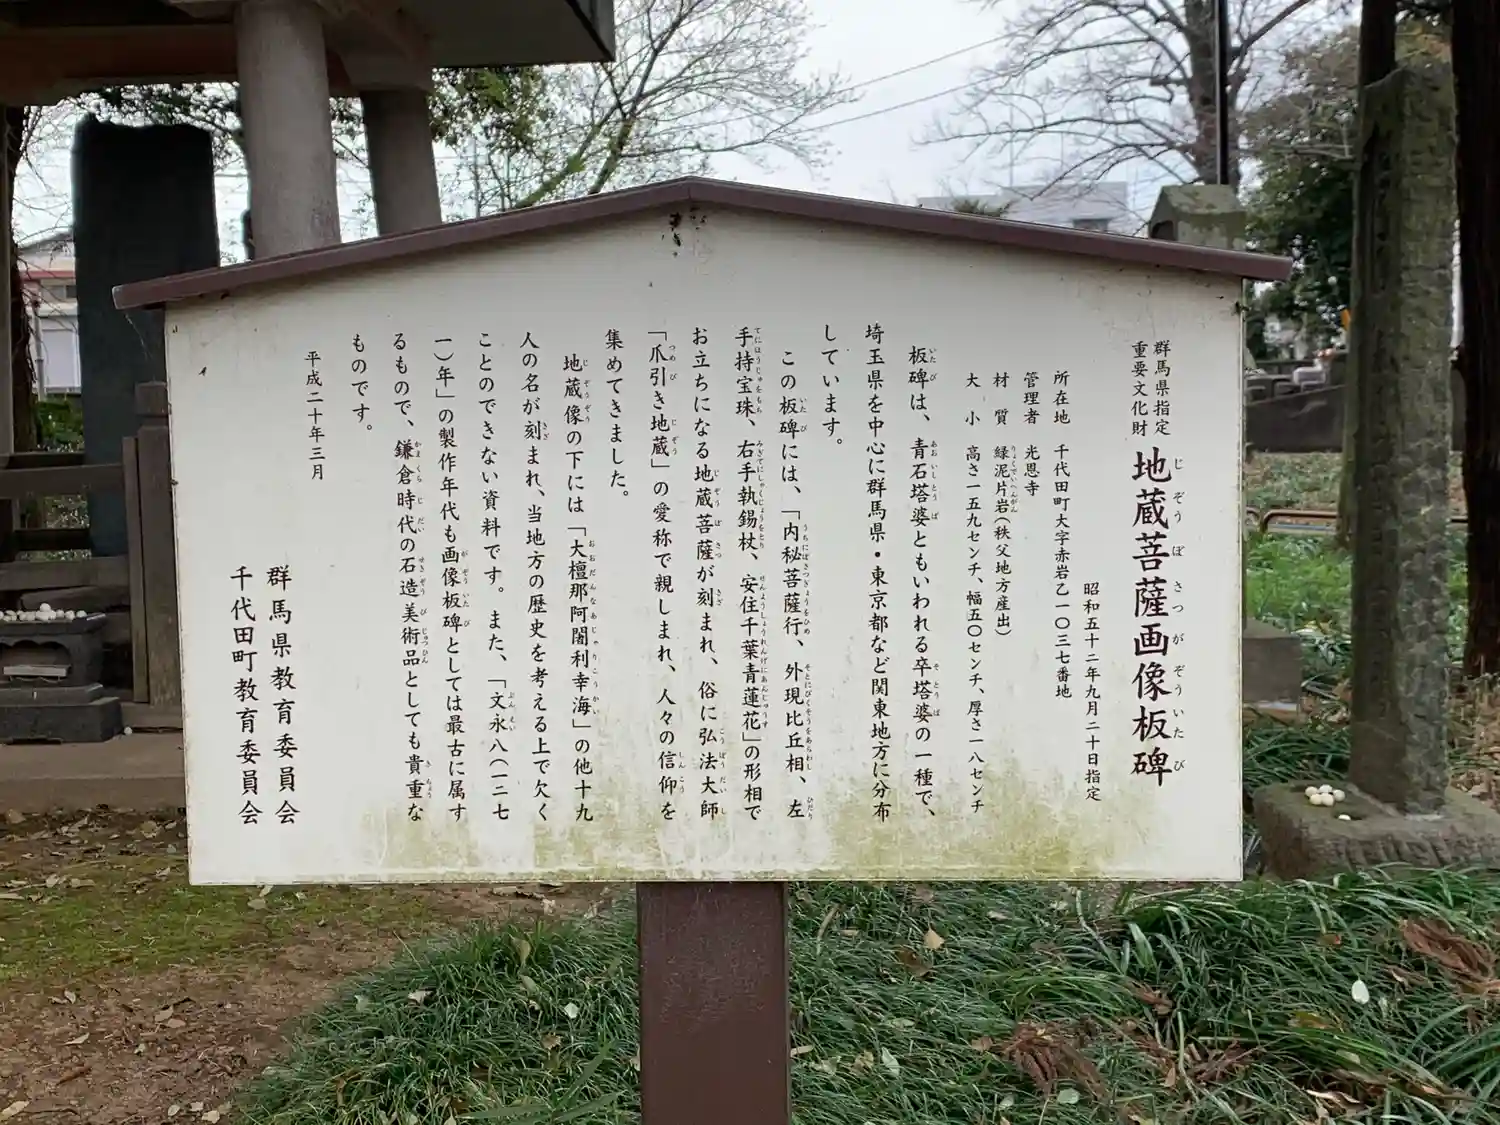 群馬県指定
重要文化財
地蔵菩薩画像板碑
じぞうぼさつがぞういたび
昭和五十二年九月二十日指定
所在地 千代田町大字赤岩乙一〇三七番地
管理者 光恩寺
材質 緑泥片岩(秩父地方産出)
りょくでいへんがん
大小 高さ一五九センチ、幅五〇センチ、厚さ一八センチ
板碑は、青石塔婆ともいわれる卒塔婆の一種で、
埼玉県を中心に群馬県・東京都など関東地方に分布
しています。
この板碑には、「内秘菩薩行、外現比丘相、左
手持宝珠、右手執錫杖、安住千葉青蓮花」の形相で
お立ちになる地蔵菩薩が刻まれ、俗に弘法大師
「爪引き地蔵」の愛称で親しまれ、人々の信仰を
集めてきました。
地蔵像の下には「大檀那阿闍利幸海」の他十九
人の名が刻まれ、当地方の歴史を考える上で欠く
ことのできない資料です。また、「文永八(一二七
一)年」の製作年代も画像板碑としては最古に属す
るもので、鎌倉時代の石造美術品としても貴重な
ものです。
平成二十年三月
群馬県教育委員会
千代田町教育委員会